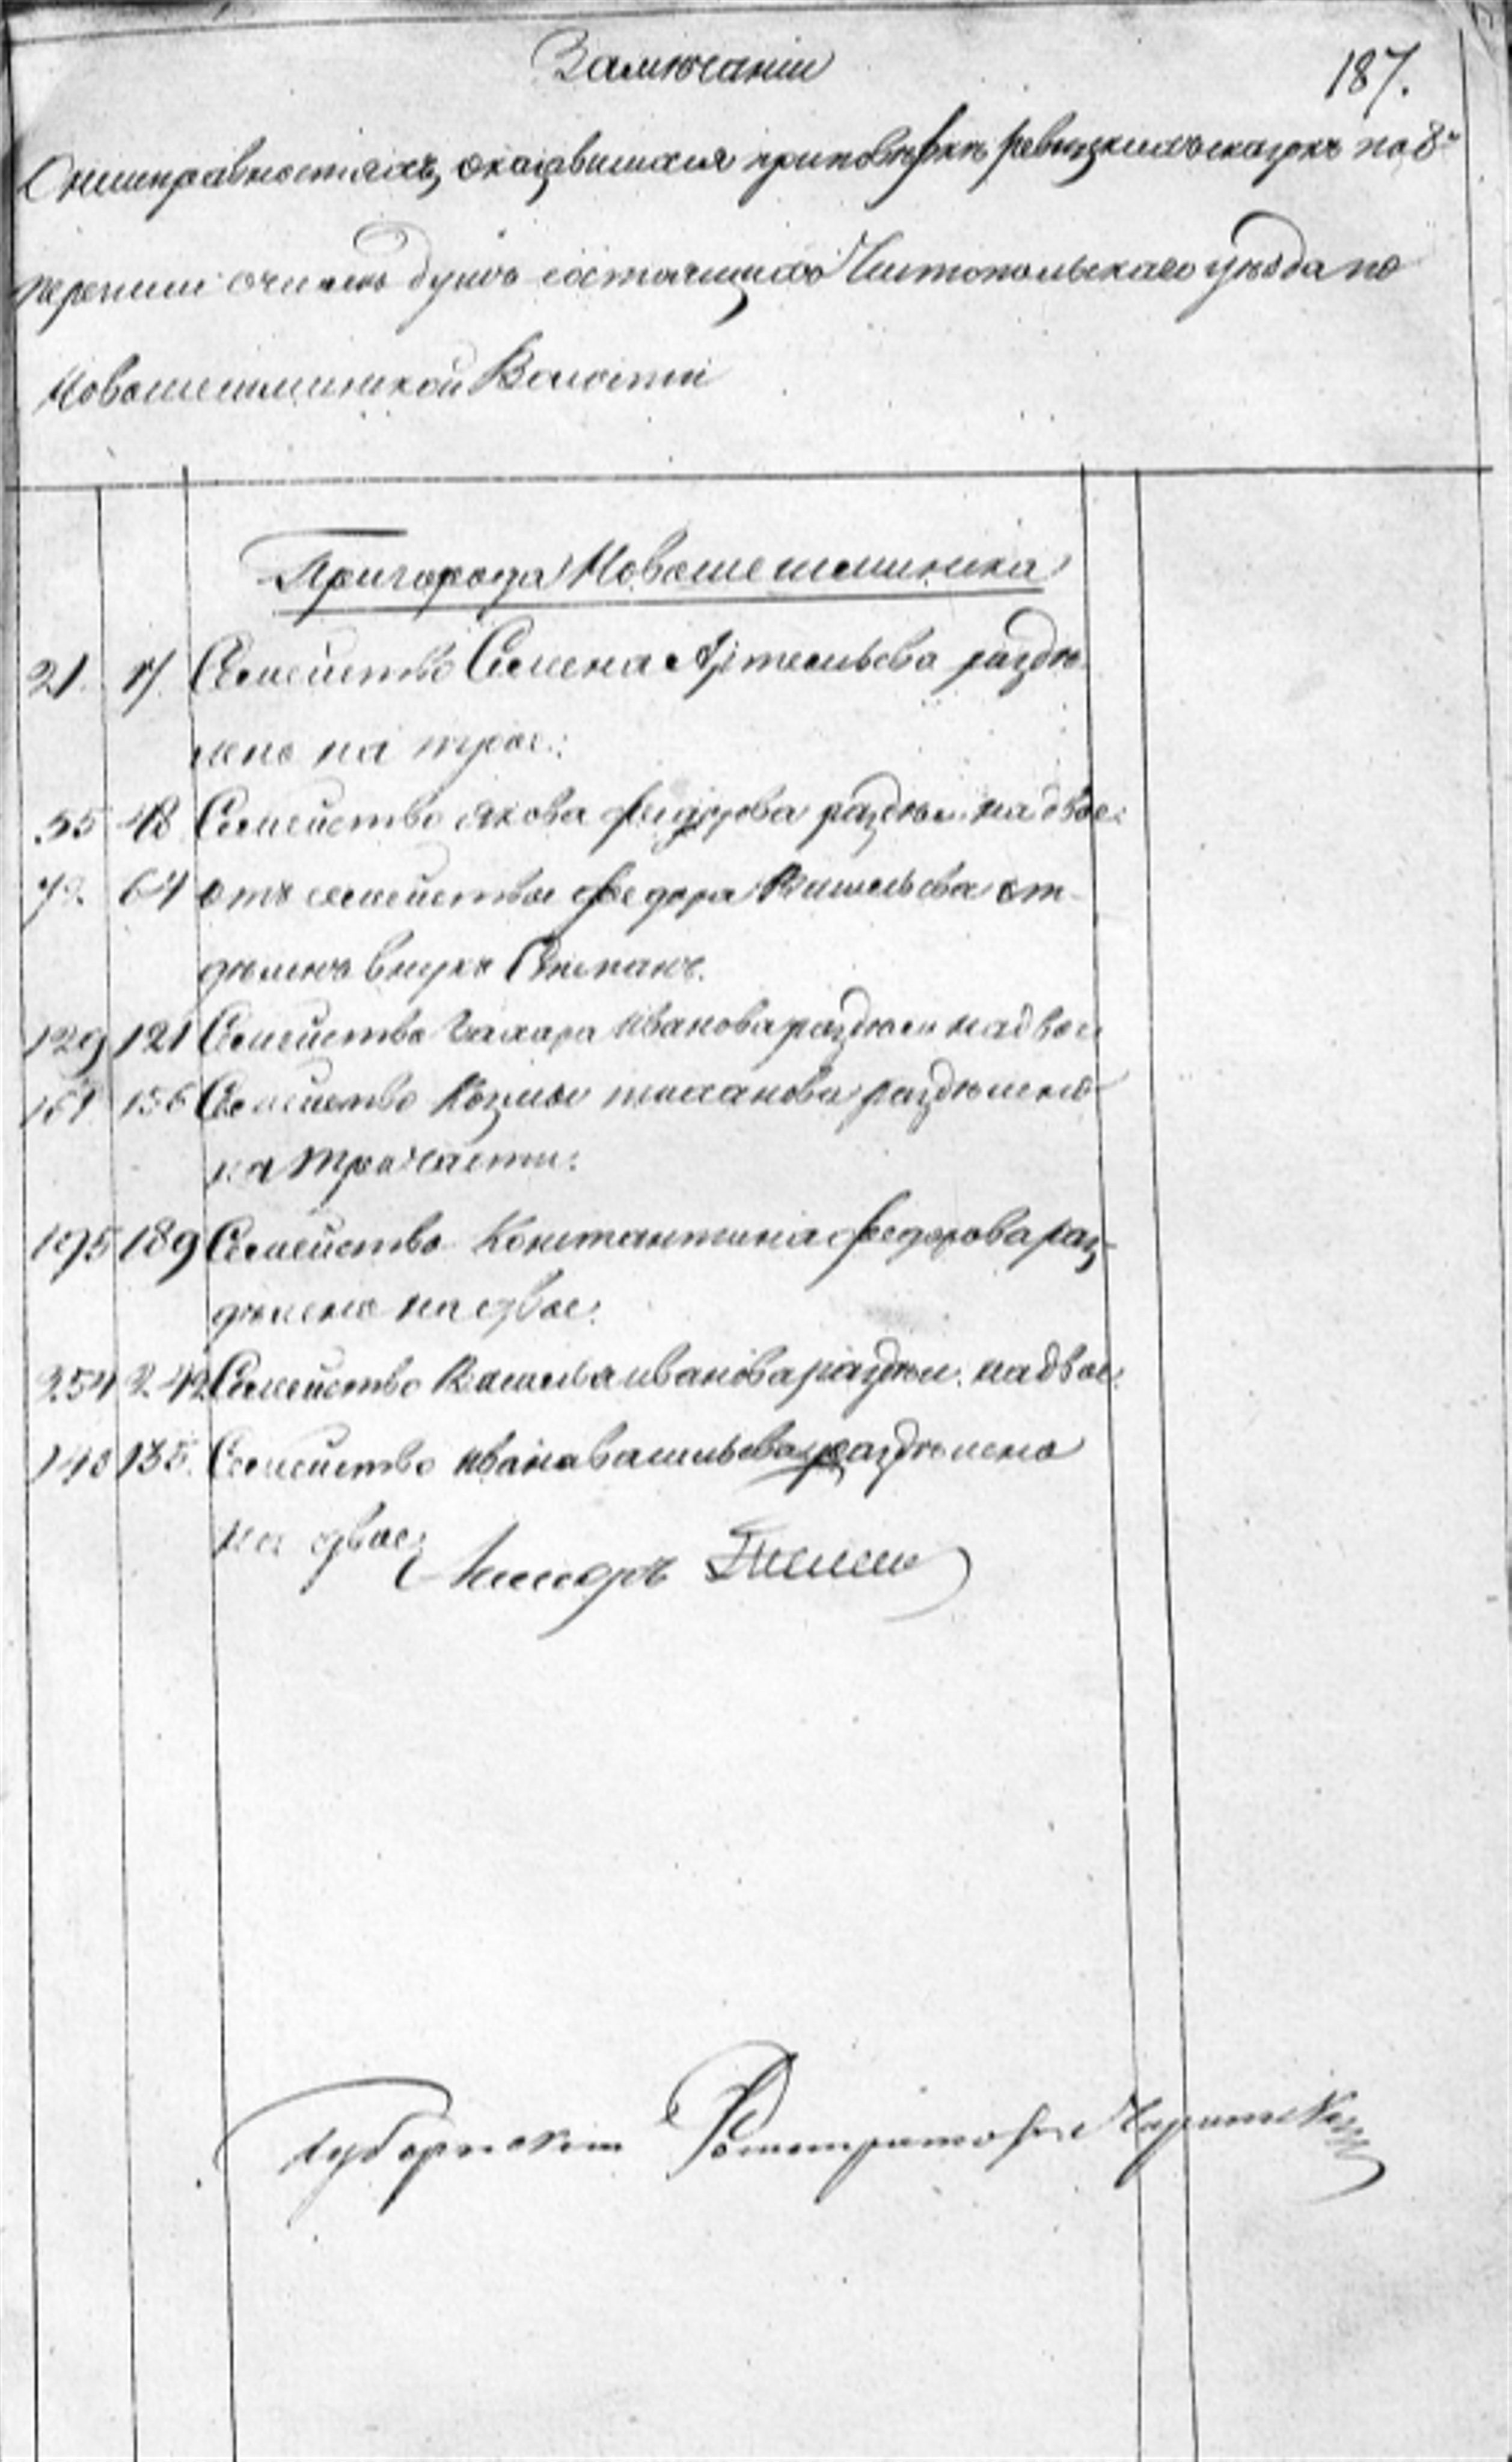 Замечанiи
187.
О неисправностяхъ, оказавшихся приповѣркѣ ревизкихъ сказокъ по 8й
переписи очислѣ душъ состоящихъ Чистопольскаго уѣзда по
Новошешминской Волости
Пригорода Новошешминска
21. 17. Семейство Семена Артемьева раздѣ-
лено на трое:
55 48 Семейство якова федорова раздѣл. на двое:
64 отъ семейства федора Васильева от-
дѣленъ внукъ Степанъ.
129 121 Семейство Захара иванова раздѣлен надвое
156 Семейство Козмы раздѣлено
на три части:
195 189 Семейство Константина федорова раз-
дѣлено на двое.
254 242 Семейство Василья иванова раздѣл. надвое.
140 135. Семейство ивана васильева раздѣлено
на двое.
Губернскiй Регистраторъ